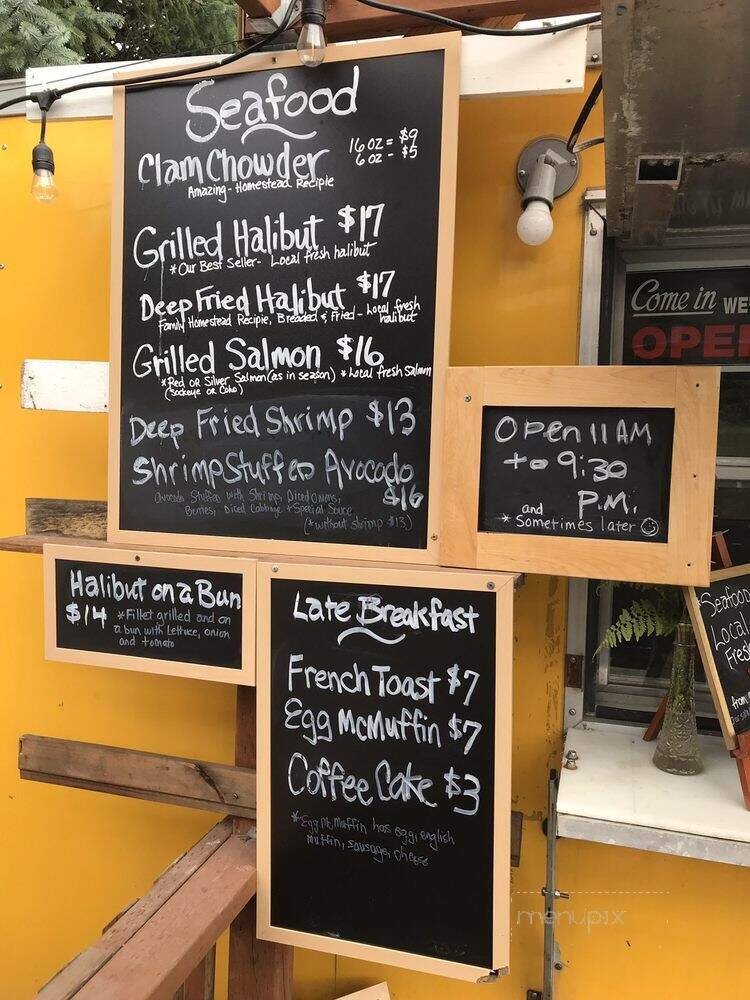 Seafood
Clam Chowder
16 oz = $9
6 oz - $5
Amazing - Homestead Recipie
Grilled Halibut $17
*Our Best Seller - Local fresh halibut
Deep Fried Halibut $17
Family Homestead Recipie, Breaded & Fried - Local fresh
halibut
Grilled Salmon $16
*Red or Silver Salmon (as in season) *Local fresh Salmon
(Sockeye or Coho)
Deep Fried Shrimp $13
Shrimp Stuffed Avocado
$16
Avocado Stuffed with Shrimp, Diced onions,
Berries, Diced Cabbage + Special Sauce
(*without shrimp $13)
Come in WE
OPE
Open 11 AM
to 9:30
P.M.
and
* Sometimes later ☺
Halibut on a Bun
$14 *Fillet grilled and on
a bun with Lettuce, onion
and tomato
Late Breakfast
French Toast $7
Egg McMuffin $7
Coffee Cake $3
*Egg McMuffin has egg, english
muffin, sausage, cheese
Seafood
Local
Fres
from
menupix